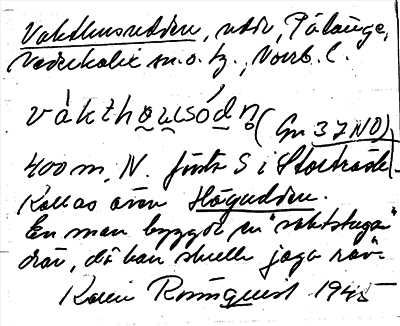 Vakthusudden, udde, Pålänge,
Nederkalix sn. o. tg., Norrb. l.
vákthousód̥n (Gn 37 NO)
400 m. N. första S i Storträsk-
Kallas även Högudden.
En man byggde en "vaktstuga"
där, då han skulle jaga räv.
Karin Rosenquist 1945